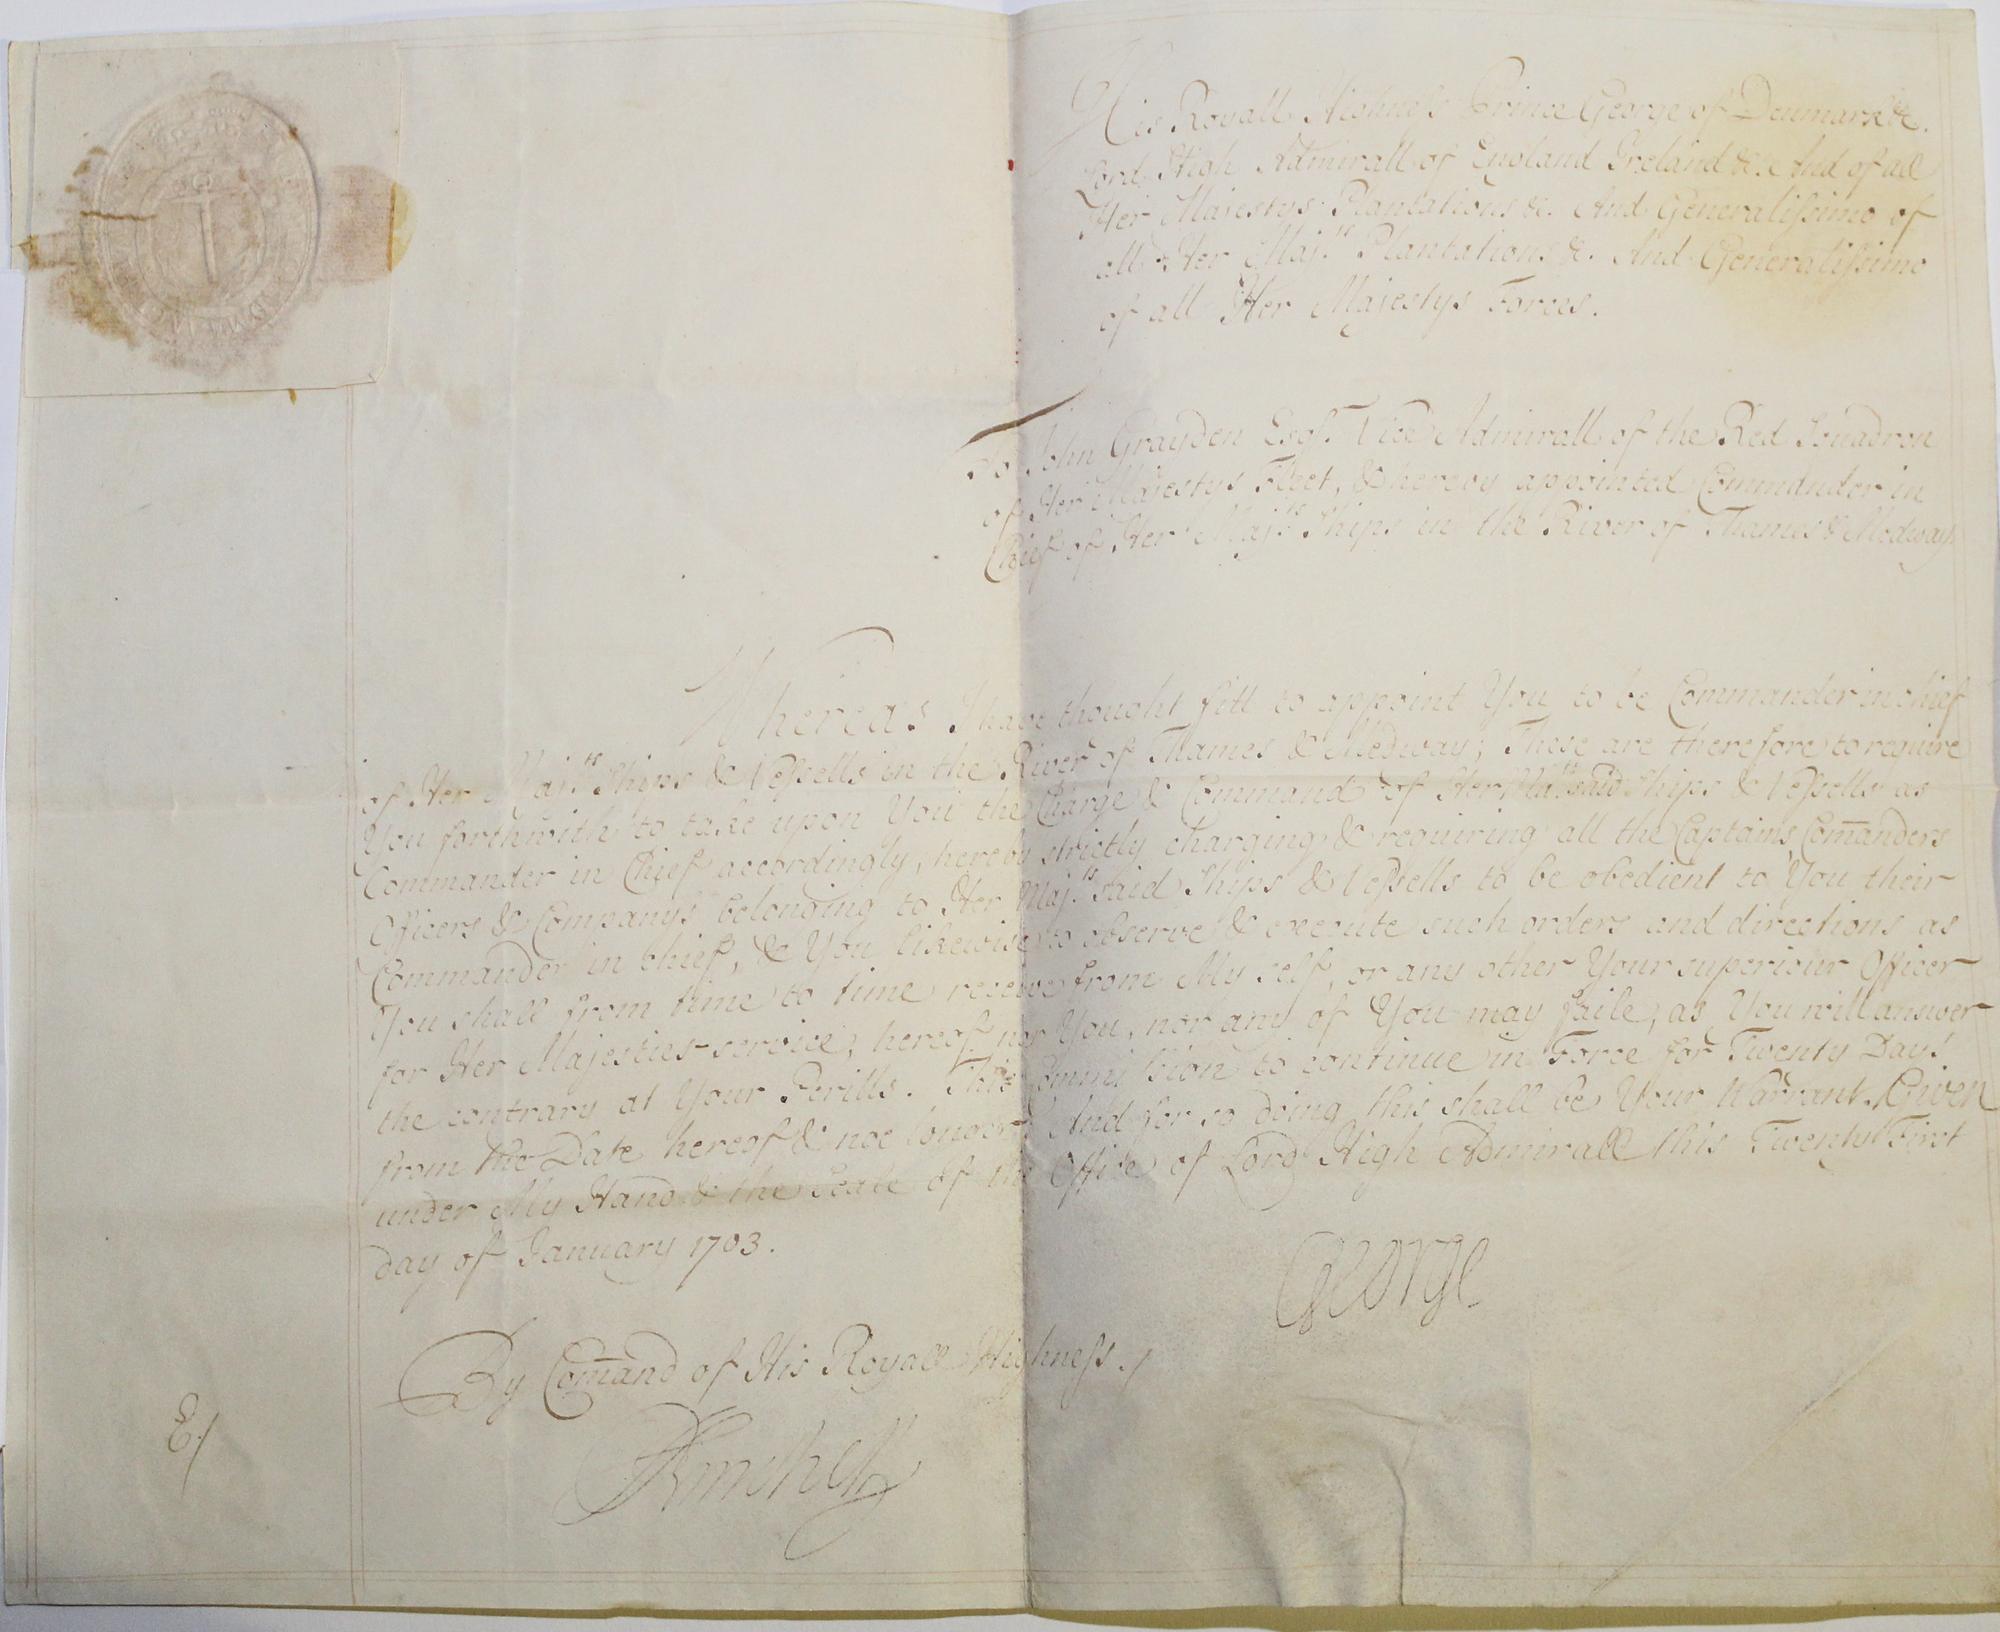 His Royall Highness Prince George of Denmark &c.
Lord High Admirall of England Ireland &c. And of all
Her Majestys Plantations &c. And Generalissimo of
all Her Maj.ts Plantations &c. And Generalissimo
of all Her Majestys Forces.
To John Graydon Esq.r Vice Admirall of the Red Squadron
of Her Majestys Fleet, & hereby appointed Commander in
Chief of Her Maj.ts Ships in the River of Thames & Medway
Whereas I have thought fitt to appoint You to be Commander in chief
of Her Maj.ts Ships & Vessells in the River of Thames & Medway; These are therefore to require
You forthwith to take upon You the Charge & Command of Her Ma.ts said Ships & Vessells as
Commander in Chief accordingly, hereby strictly charging & requiring all the Captains Com̄anders
Officers & Companys belonging to Her Maj.ts said Ships & Vessells to be obedient to You their
Commander in chief, & You likewise to observe & execute such orders and directions as
You shall from time to time receive from My self, or any other Your superiour Officer
for Her Majesties service; hereof nor You, nor any of You may faile, as You will answer
the contrary at Your Perills. This Commission to continue in Force for Twenty Days
from the Date hereof & noe longer. And for so doing this shall be Your Warrant. Given
under My Hand & the Seale of the Office of Lord High Admirall this Twenty First
day of January 1703.
George
By Com̄and of His Royall Highness.
E/